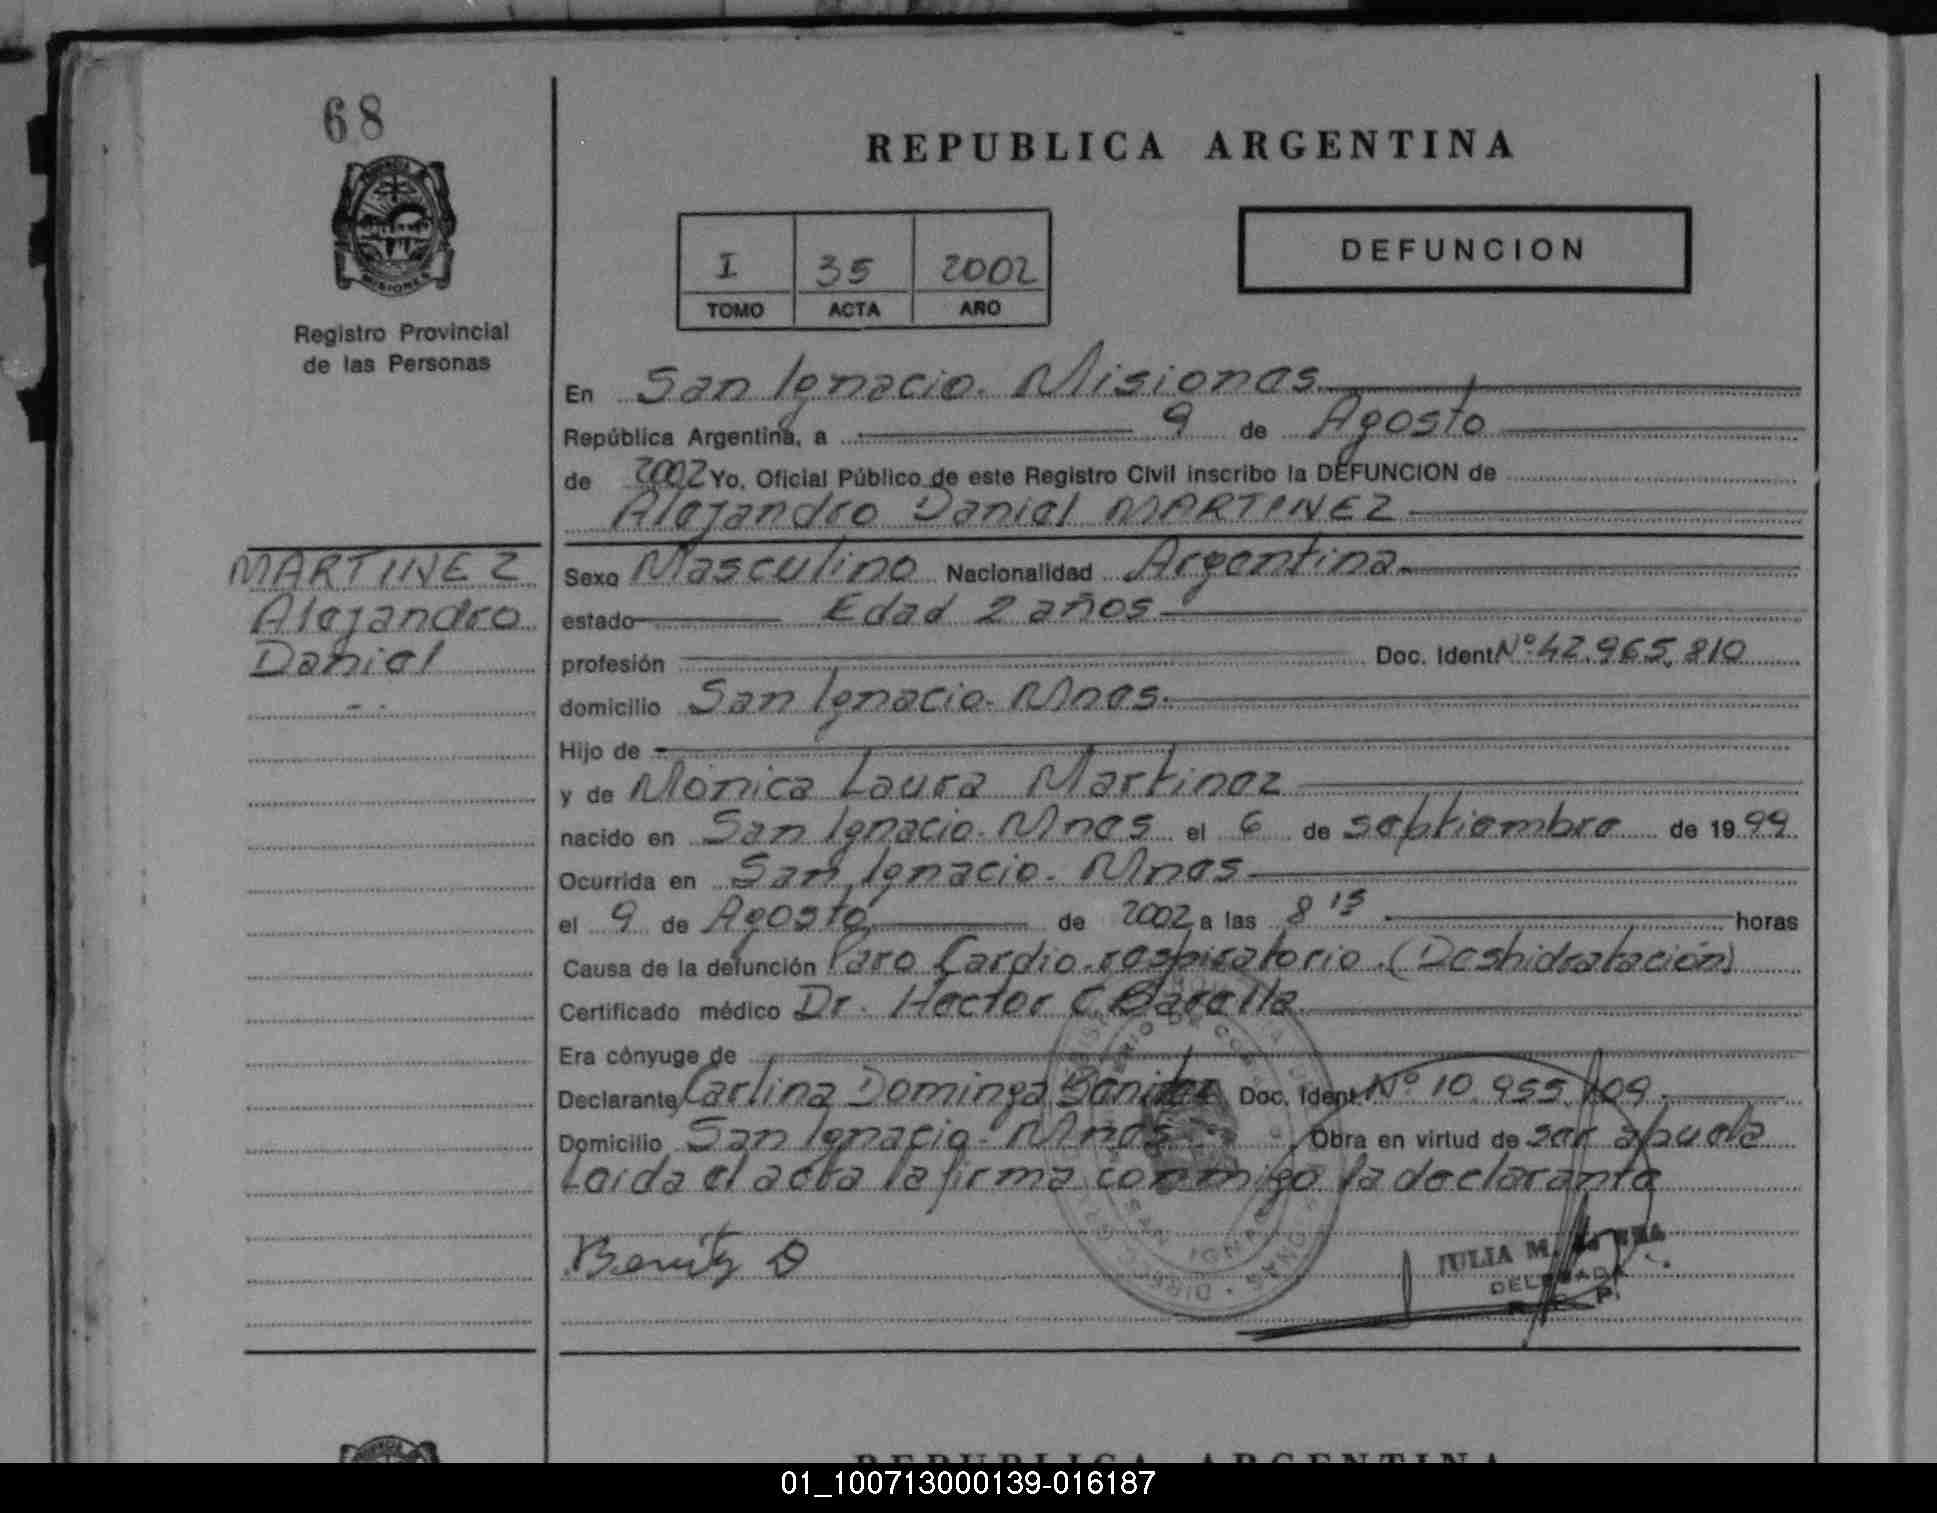 68
PROVINCIA
MISIONES
Registro Provincial
de las Personas
REPUBLICA ARGENTINA
I 35 2002
TOMO ACTA AÑO
DEFUNCION
En San Ignacio. Misiones
República Argentina, a 9 de Agosto
de 2002 Yo, Oficial Público de este Registro Civil inscribo la DEFUNCION de
Alejandro Daniel MARTINEZ
MARTINEZ
Alejandro
Daniel
Sexo Masculino Nacionalidad Argentina
estado Edad 2 años
profesión Doc. Ident. Nº 42.965.810
domicilio San Ignacio. Mnes.
Hijo de
y de Mónica Laura Martinez
nacido en San Ignacio. Mnes el 6 de septiembre de 1999
Ocurrida en San Ignacio. Mnes
el 9 de Agosto de 2002 a las 8 15 horas
Causa de la defunción Paro Cardio respiratorio (Deshidratación)
Certificado médico Dr. Hector C. Barella
Era cónyuge de
Declarante Carlina Dominga Benitez Doc. Ident. Nº 10.955.109
Domicilio San Ignacio. Mnes Obra en virtud de ser abuela
Leida el acta la firma conmigo la declarante
Benitz D
JULIA M.
DELEGADA
R. P.
REPUBLICA ARGENTINA
01_100713000139-016187